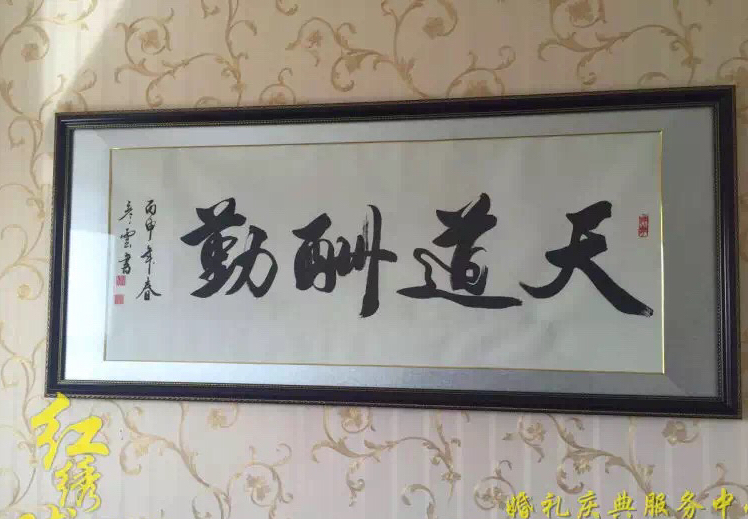 天道酬勤
丙申年春
彦雲書
红绣
婚礼庆典服务中